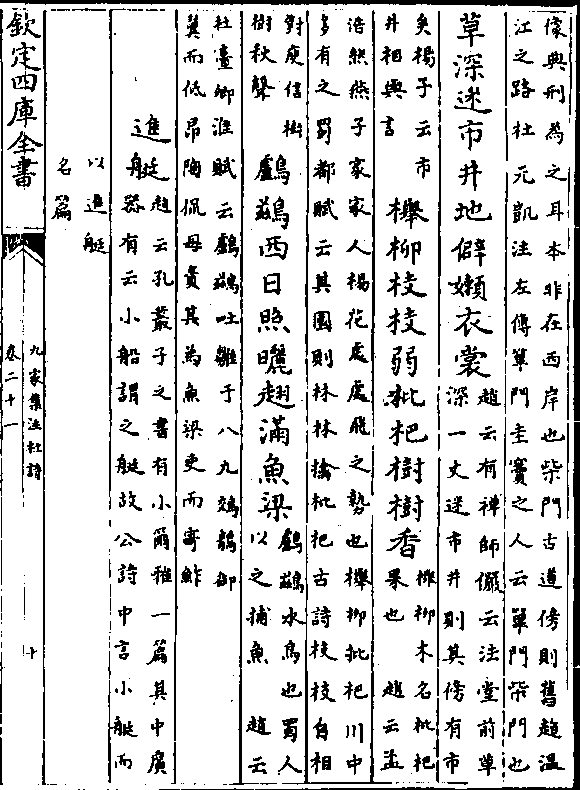 像典刑為之耳本非在西岸也柴門古道傍則舊趙温
江之路杜元凱注左傳篳門圭竇之人云篳門柴門也
草深迷市井地僻嬾衣裳趙云有禪師儼云法堂前草
深一丈迷市井則其傍有市
矣楊子云市
井相與言
櫸柳枝枝弱枇杷樹樹香櫸柳木名枇杷
果也 趙云孟
浩然燕子家家人楊花處處飛之勢也櫸柳枇杷川中
多有之蜀都賦云其園則林林檎枇杷古詩枝枝自相
對庾信樹
樹秋聲
鸕鷀西日照曬翅滿魚梁鸕鷀水鳥也蜀人
以之捕魚 趙云
杜臺卿淮賦云鸕鷀吐雛于八九鵁鶄御
翼而低昂陶侃母責其為魚梁吏而寄鮓
進艇趙云孔叢子之書有小爾雅一篇其中廣
器有云小船謂之艇故公詩中言小艇而
以進艇
名篇
欽定四庫全書
九家集注杜詩
卷二十一
十